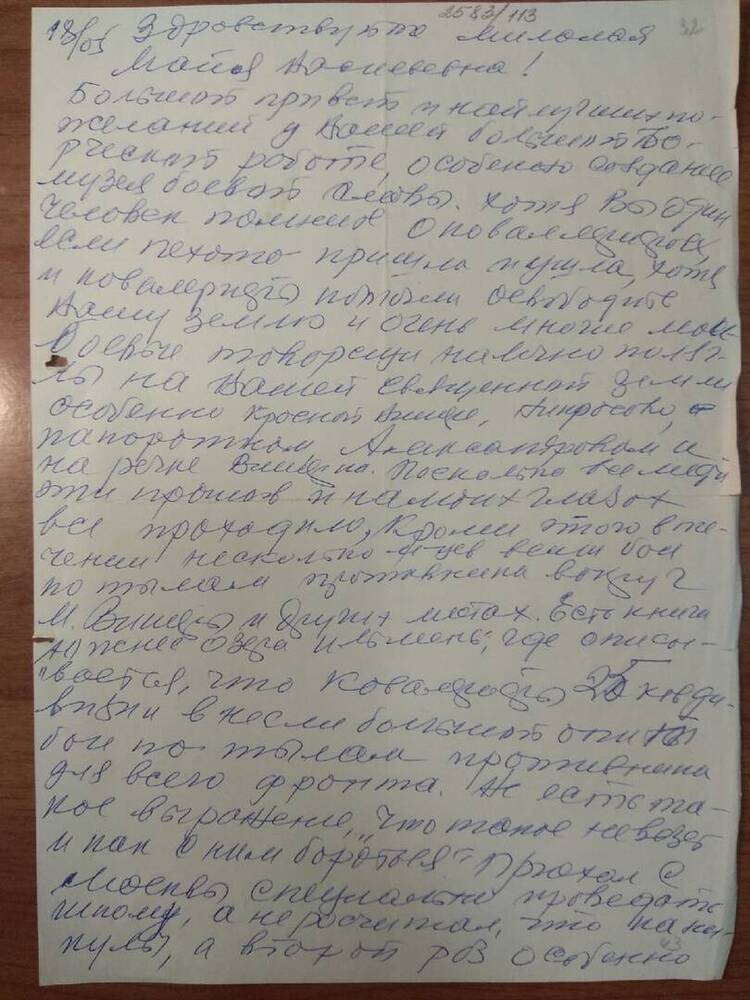 2583/113
32
18/05 Здравствуйте милолая
Майя Василевна!
Большой привет и найлучших по-
желаний у Вашей большой Тво-
рческой работе, особено создание
музея боевой славы. Хотя Вы один
человек помните О ковалеридзов,
если пехота пришла и ушла, хотя
и ковалеридзы помогли освободить
Вашу землю и очень многие мои
боевые товарищи навечно полег-
лы на Вашей священной земли
особенно Красной Вишере,
папоротном Александровкам и
на речке Вишерка. Поскольку всем
эти прошов и на моих глазах
все проходило, Кроми этого в те-
чении несколько вели бои
по тылам противника вокруг
М. Вишеры и других местах. Есть книга
южнее озера ильмень, где описы-
вается, что Коваледзы 25 кавди-
визии внесли большой опыты
бои по тылам противника
для всего фронта. Ж есть та-
кое выражение, "что такое невезет
и как с ним бороться" Приехал с
Москвы специально проведать
школу, а не росчитал, что кани-
кулы, а второй раз особенно
43